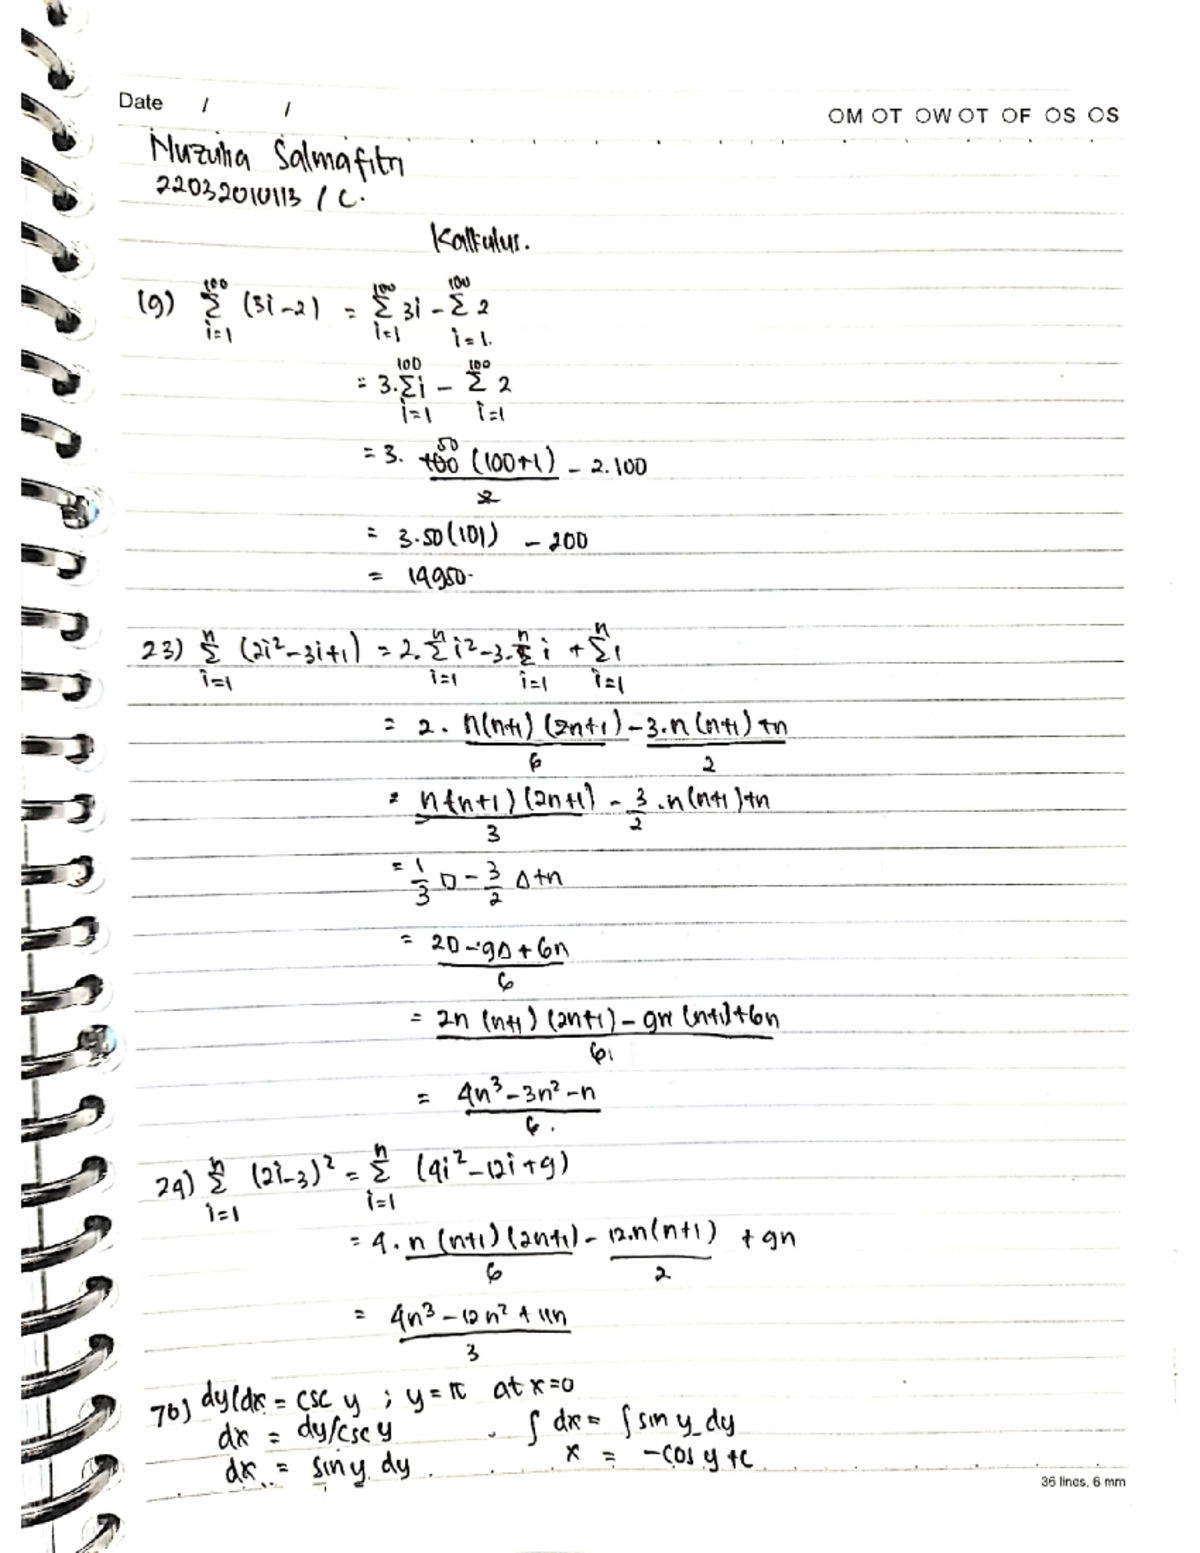 Date / /
OM OT OW OT OF OS OS
Nuzulia Salmafitri
22032010113 / C.
Kalkulus.
19) 100 Σ i=1 (3i-2) = 100 Σ i=1 3i - 100 Σ i=1. 2
= 3. 100 Σ i=1 i - 100 Σ i=1 2
= 3. 100 50 (100+1) / 2 - 2.100
= 3.50(101) - 200
= 14950.
23) n Σ i=1 (2i²-3i+1) = 2. n Σ i=1 i² - 3. n Σ i=1 i + n Σ i=1 1
= 2. n(n+1)(2n+1) / 6 - 3.n(n+1) / 2 + n
= n(n+1)(2n+1) / 3 - 3/2 .n(n+1)+n
= 1/3 □ - 3/2 △ + n
= 2□ - 9△ + 6n / 6
= 2n(n+1)(2n+1) - 9n(n+1)+6n / 6
= 4n³-3n²-n / 6.
24) n Σ i=1 (2i-3)² = n Σ i=1 (4i²-12i+9)
= 4. n(n+1)(2n+1) / 6 - 12.n(n+1) / 2 + 9n
= 4n³-12n²+11n / 3
76) dy/dx = csc y ; y = π at x=0
dx = dy/csc y
dx = sin y dy
∫ dx = ∫ sin y dy
x = -cos y + c
36 lines, 6 mm